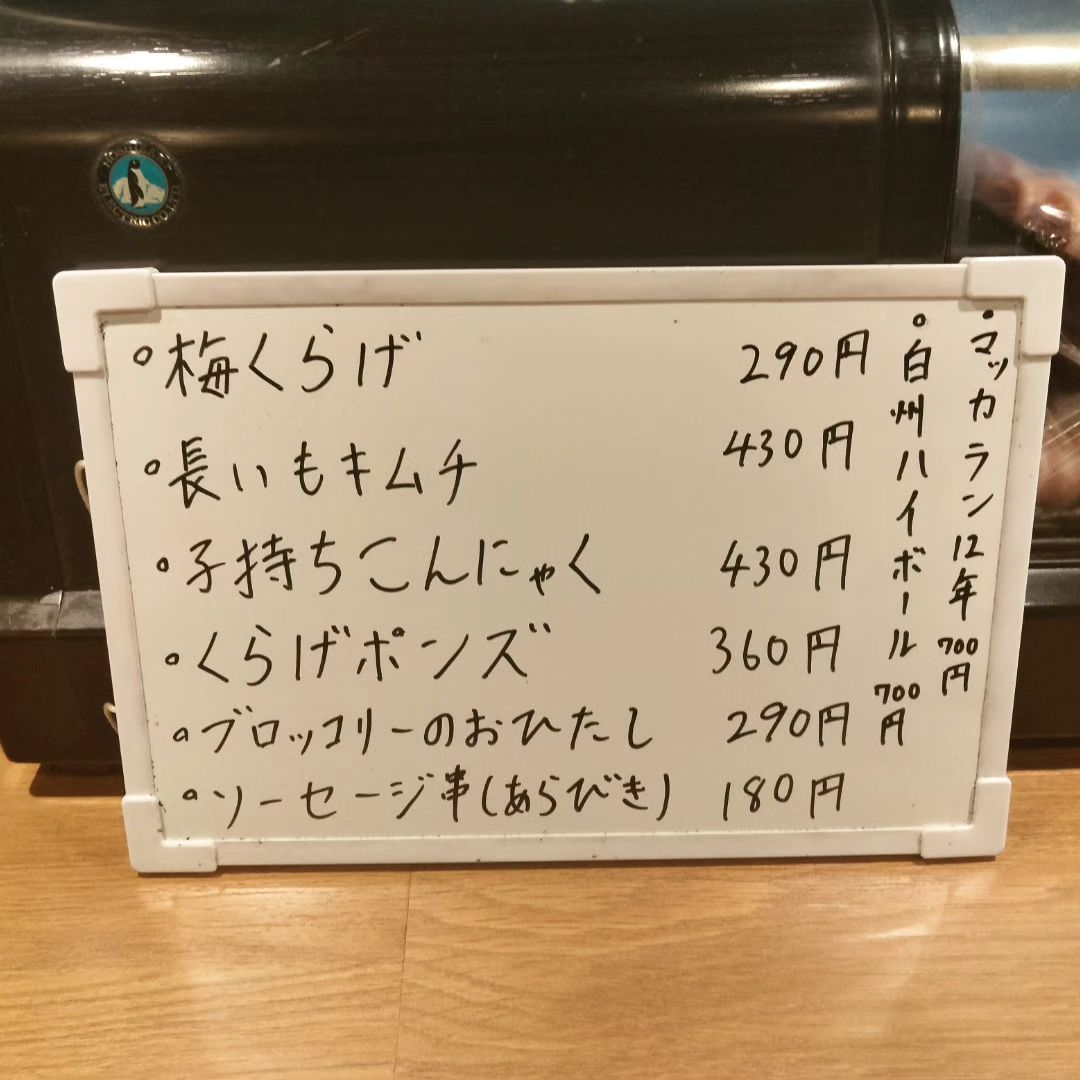 梅くらげ 290円
長いもキムチ 430円
子持ちこんにゃく 430円
くらげポンズ 360円
ブロッコリーのおひたし 290円
ソーセージ串(あらびき) 180円
マッカラン12年 700円
白州ハイボール 700円
ELECTRIC CO.,LTD